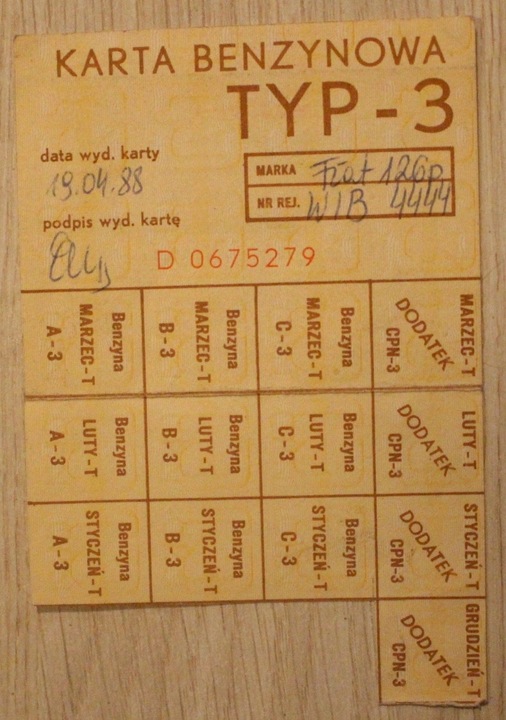 KARTA BENZYNOWA
TYP - 3
data wyd. karty
19.04.88
MARKA Fiat 126p
NR REJ. WIB 4444
podpis wyd. kartę
D 0675279
Benzyna
MARZEC-T
A-3
Benzyna
MARZEC-T
B-3
Benzyna
MARZEC-T
C-3
MARZEC-T
DODATEK
CPN-3
Benzyna
LUTY-T
A-3
Benzyna
LUTY-T
B-3
Benzyna
LUTY-T
C-3
LUTY-T
DODATEK
CPN-3
Benzyna
STYCZEŃ-T
A-3
Benzyna
STYCZEŃ-T
B-3
Benzyna
STYCZEŃ-T
C-3
STYCZEŃ-T
DODATEK
CPN-3
GRUDZIEŃ-T
DODATEK
CPN-3